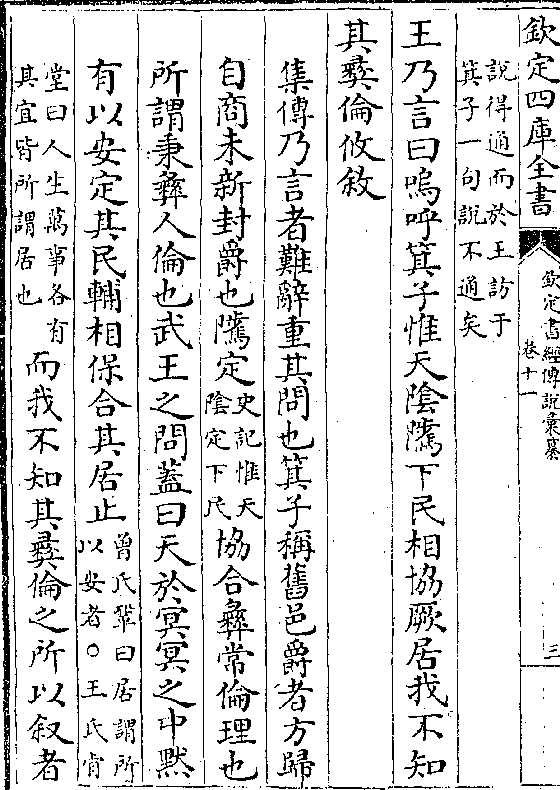 欽定四庫全書
欽定書經傳說彙纂
卷十一
三
說得通而於王訪于
箕子一句說不通矣
王乃言曰嗚呼箕子惟天陰騭下民相協厥居我不知
其彝倫攸敘
集傳乃言者難辭重其問也箕子稱舊邑爵者方歸
自商未新封爵也騭定
史記惟天
陰定下民
協合彝常倫理也
所謂秉彝人倫也武王之問蓋曰天於冥冥之中黙
有以安定其民輔相保合其居止
曾氏鞏曰居謂所
以安者○王氏肯
堂曰人生萬事各有
其宜皆所謂居也
而我不知其彝倫之所以叙者